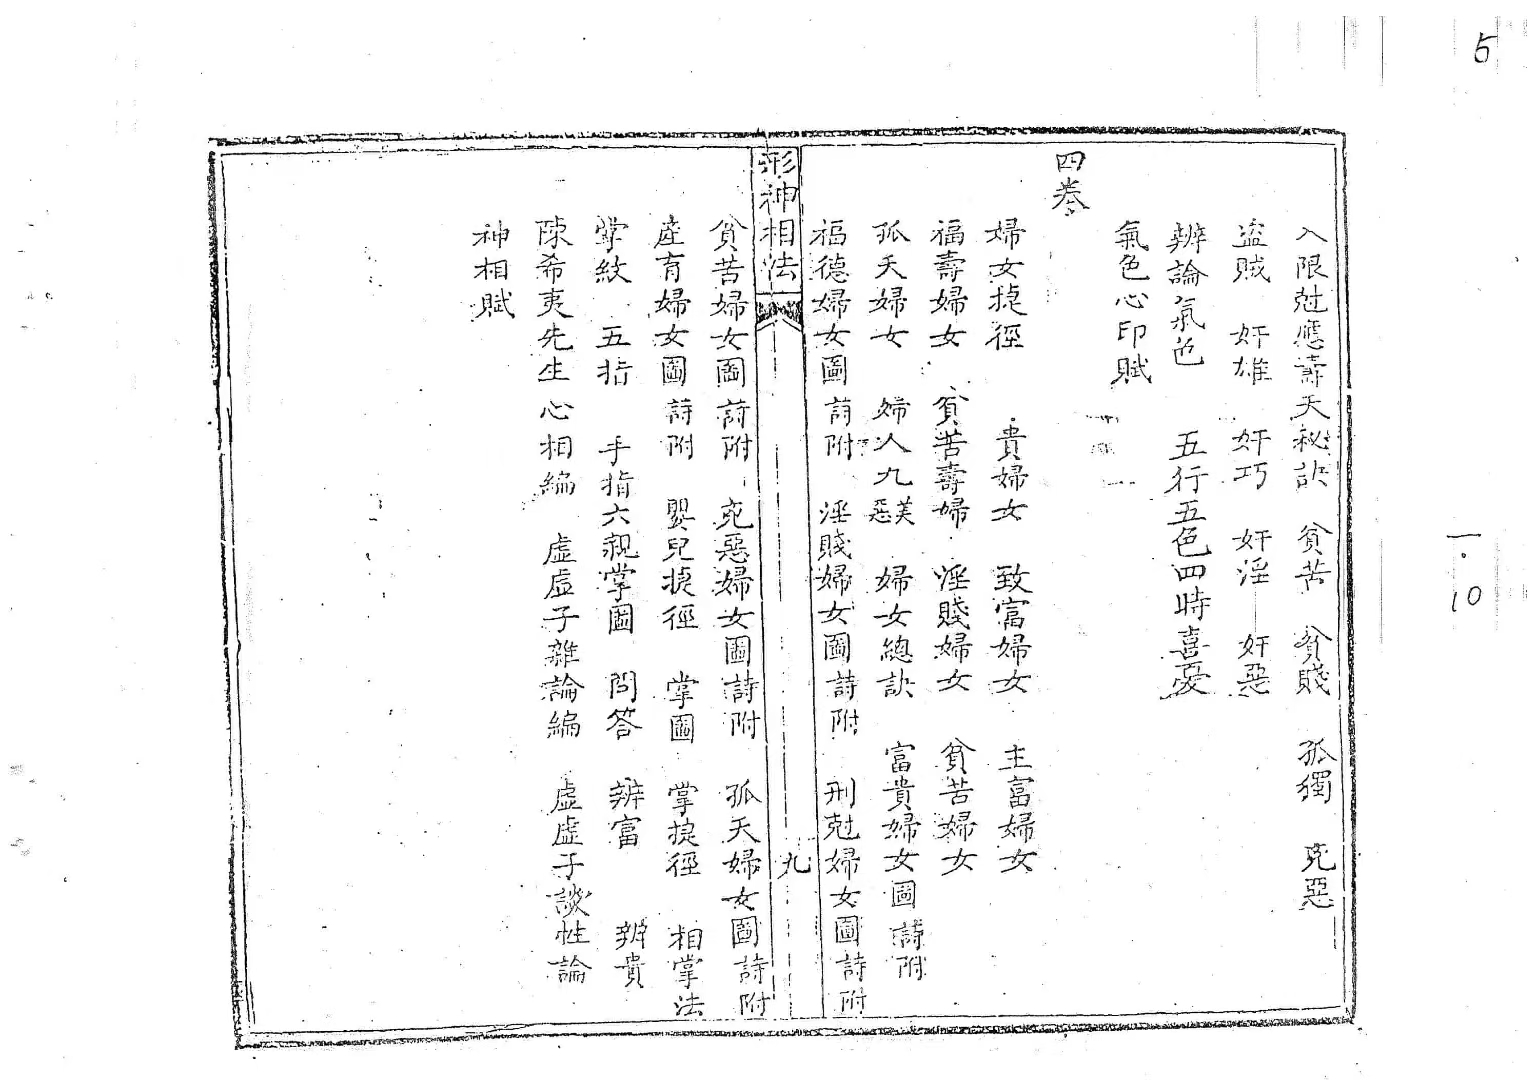 5
入限尅應壽夭秘訣　貧苦　貧賤　孤獨　克惡
盜賊　奸雄　奸巧　奸淫　奸惡
辨論氣色　五行五色四時喜憂
氣色心印賦
四卷
婦女捷徑　貴婦女　致富婦女　主富婦女
福壽婦女　貧苦壽婦　淫賤婦女　貧苦婦女
孤夭婦女　婦人九美惡　婦女總訣　富貴婦女圖詩附
福德婦女圖詩附　淫賤婦女圖詩附　刑尅婦女圖詩附
形神相法　九
貧苦婦女圖詩附　克惡婦女圖詩附　孤夭婦女圖詩附
產育婦女圖詩附　嬰兒捷徑　掌圖　掌捷徑　相掌法
掌紋　五指　手指六親掌圖　問答　辨富　辨貴
陳希夷先生心相編　虛虛子雜論編　虛虛子談性論
神相賦
一.10